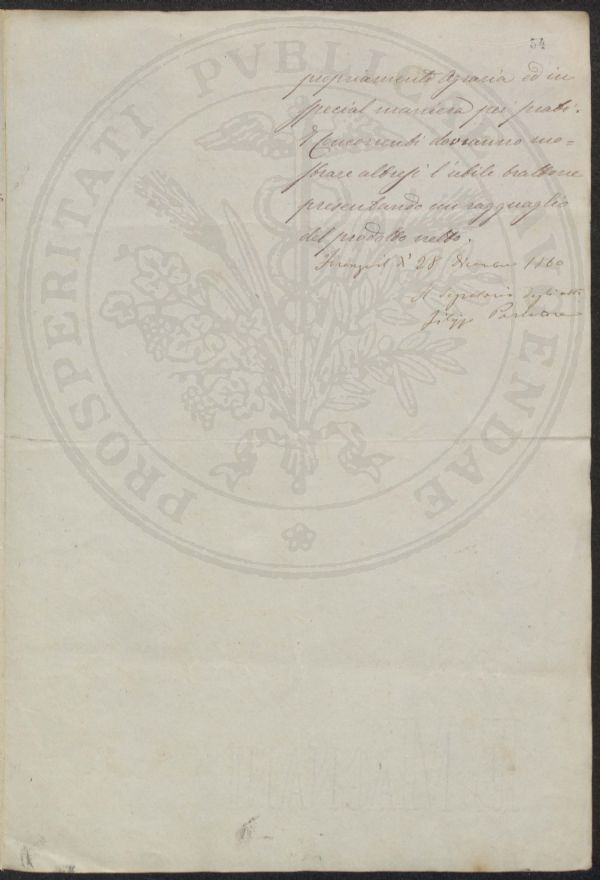 54
propriamente Agraria ed in
special maniera pei prati.
I Concorrenti dovranno mo=
strare altresì l'utile
presentando un ragguaglio
del prodotto netto.
28 Dicembre 1860
Il Segretario degli atti
Filippo
PROSPERITATI PVBLICAE AVGENDAE